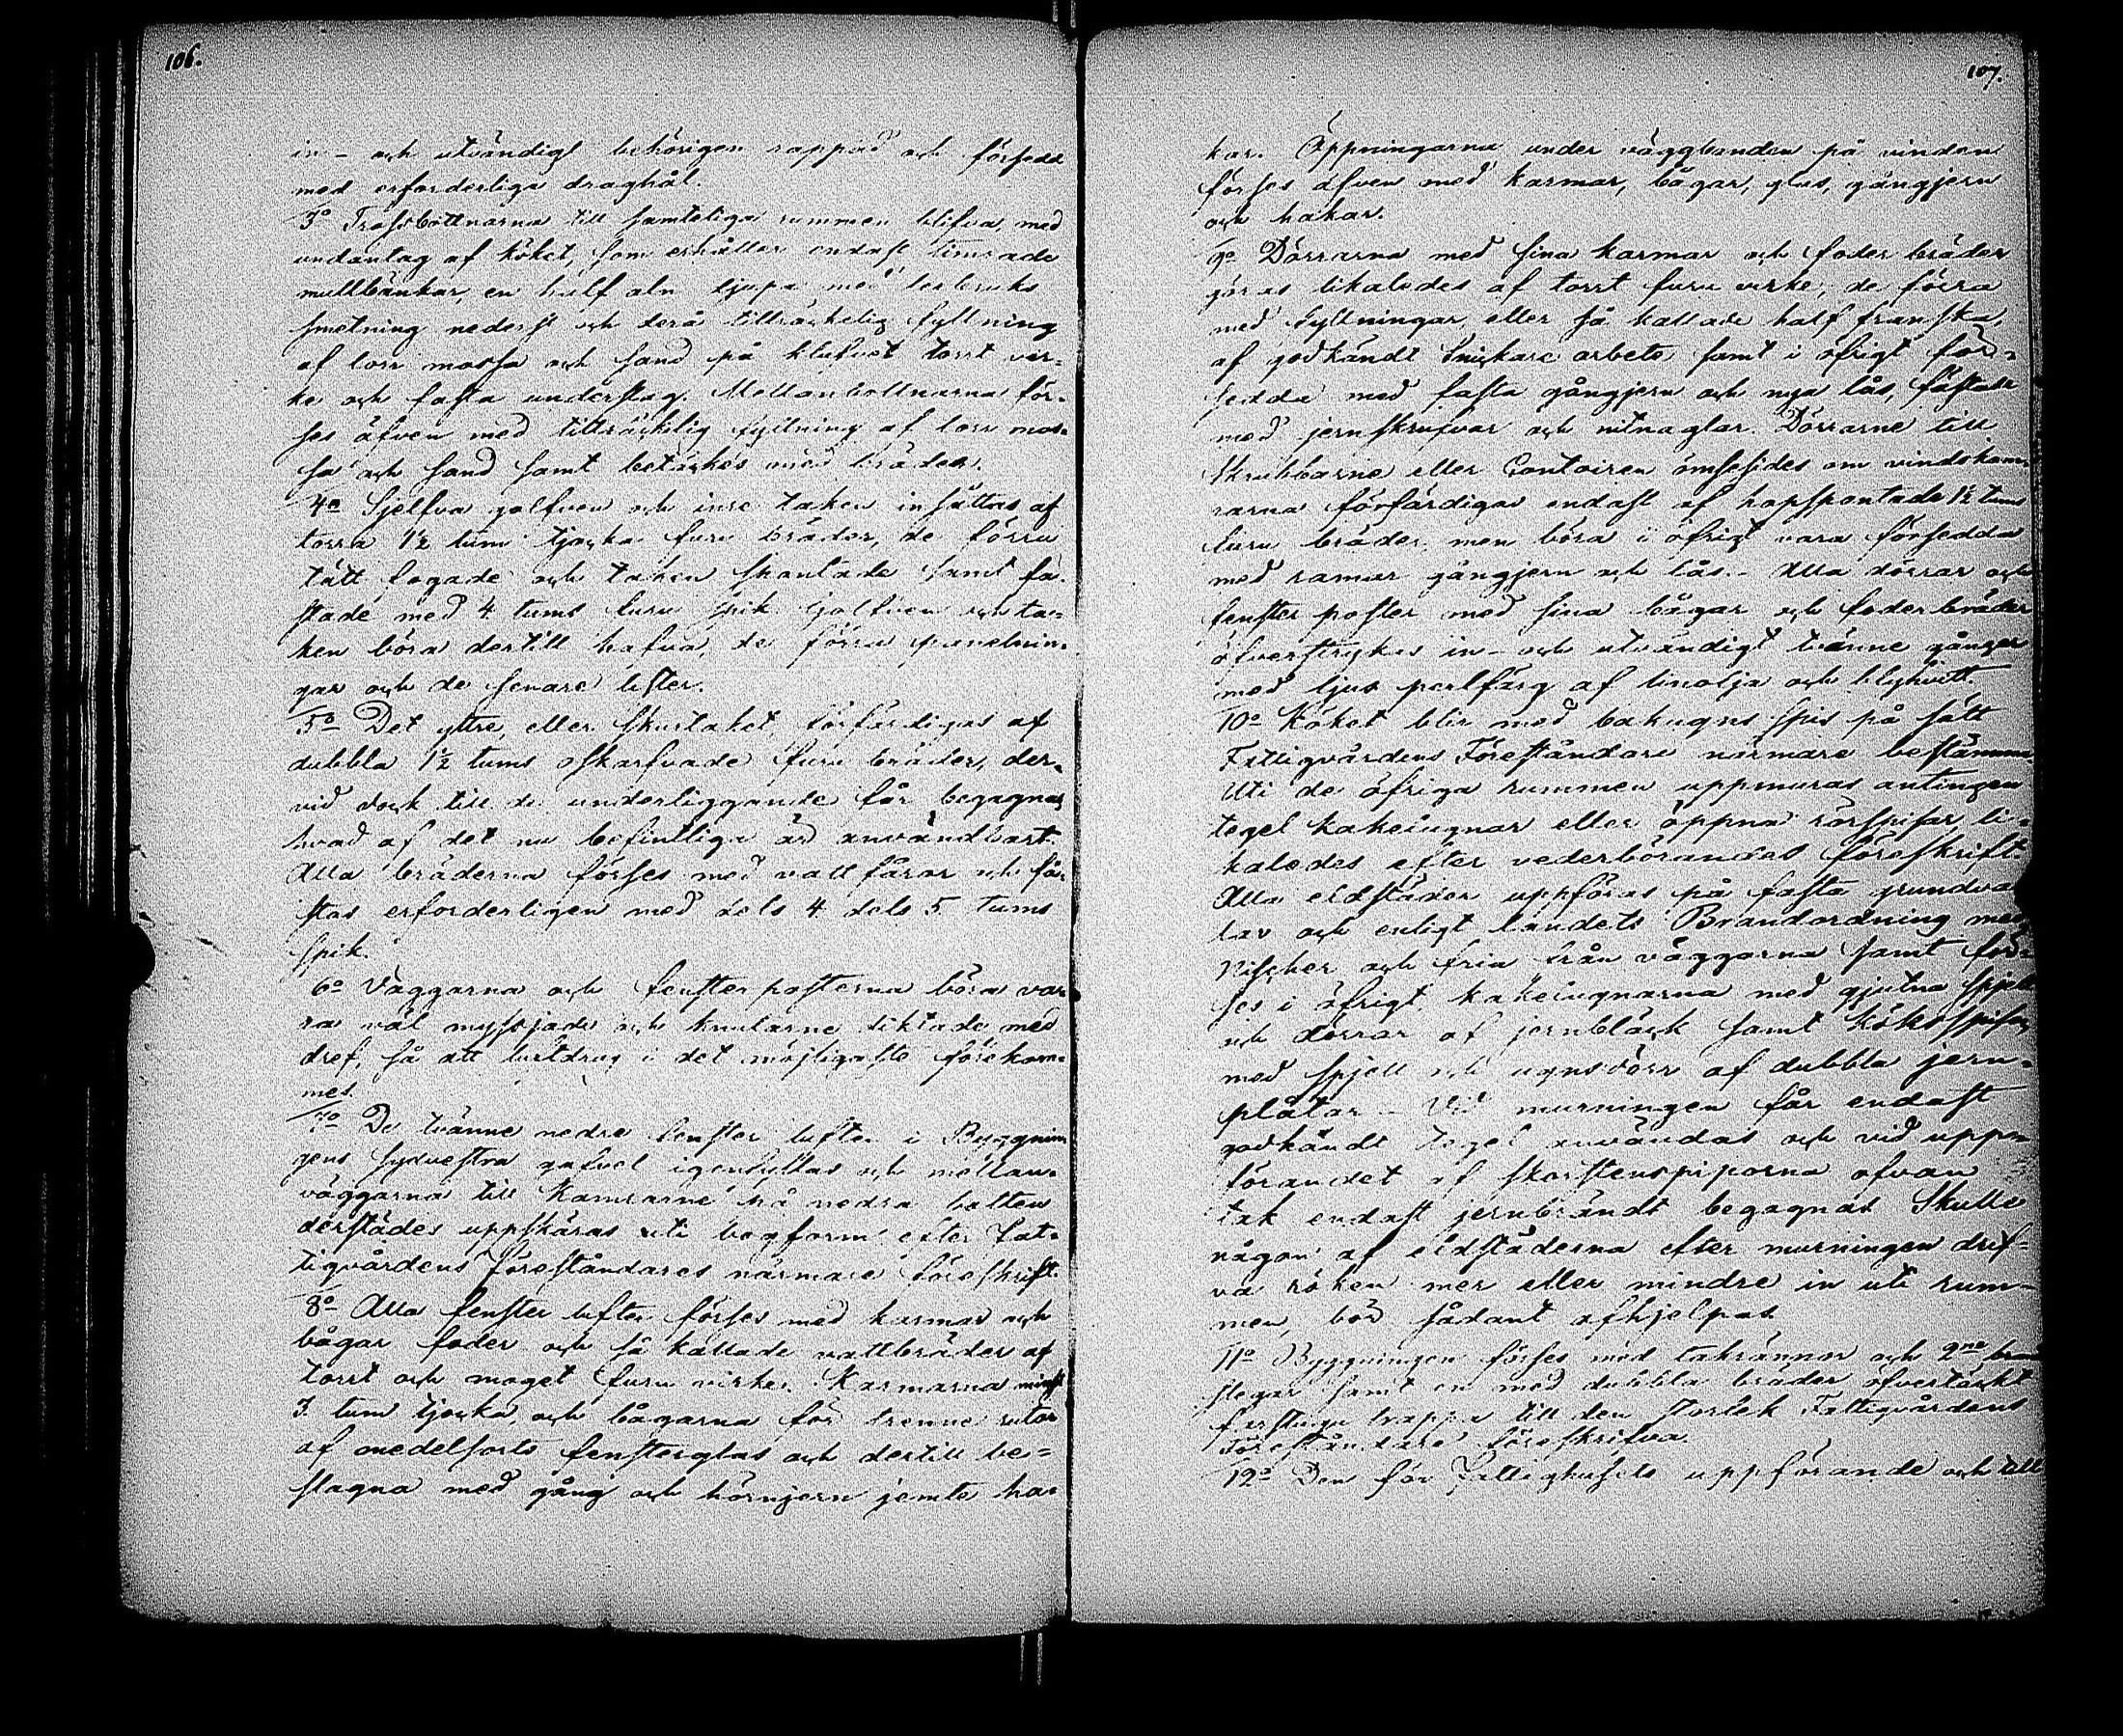 106.
in- och utvändigt behörigen rappad och försedd
med erforderliga draghål.
3o Trossbottnarna till samteliga rummen blifva, med
undantag af köket, som erhåller endast timrade
mullbänkar, en half aln djupa med lerbruks
smetning nederst och derå tillräckelig fyllning
af torr mossa och sand på klufvet torrt vir-
ke och fasta understag. Mellanbottnarna för-
ses äfven med tillräcklig fyllning af torr mos-
sa och sand samt betäckes med bräder.
4o Sjelfva golfven och inre taken insättas af
torra 1½ tum tjocka furu bräder, de förra
tätt fogade och taken spontade samt fä-
stade med 4 tums furu spik. Golfven och ta-
ken böra dertill hafva, de förra panelnin-
gar och de senare lister.
5o Det yttre, eller skurtaket, förfärdigas af
dubbla 1½ tums oskarfvade furu bräder, der-
vid dock till de underliggande får begagnas
hvad af det nu befintliga är användbart.
Alla bräderna förses med vattfåror och fä-
stas erforderligen med dels 4 dels 5 tums
spik.
6o Väggarna och fenster posterna böra va-
ra väl myssjade och knutarne diktade med
dref, så att luftdrag i det möjligaste förekom-
mes.
7o De tvänne nedre fenster lufter i Byggnin-
gens sydvestra gafvel igenfyllas och mellan-
väggarna till Kamrarne på nedra botten
derstädes uppskäras uti bogform efter Fat-
tigvårdens Föreståndares närmare föreskrift.
8o Alla fenster lufter förses med karmar och
bågar foder och så kallade vattbräder af
torrt och moget furu virke. Karmarna minst
3 tum tjocka, och bågarna för trenne rutor
af medelsorts fensterglas och dertill be-
slagna med gång och hörnjern jemte ha-
107.
kar. Öppningarna under väggbanden på vinden
förses äfven med karmar, bågar, glas, gångjern
och hakar.
9o Dörrarna med sina karmar och foder bräder
göras likaledes af torrt furu virke, de förra
med fyllningar, eller så kallade half franska,
af godkändt Snickare arbete samt i öfrigt för-
sedda med fasta gångjern och nya lås, fästade
med jernskrufvar och nitnaglar. Dörrarne till
Skrubbarne eller Contoiren ömsesides om vindskam-
rarna förfärdigas endast af hopspontade 1½ tums
furu bräder, men böra i öfrigt vara försedda
med ramar gångjern och lås. - Alla dörrar och
fenster poster med sina bågar och foderbräder
öfverstrykas in- och utvändigt tvänne gånger
med ljus perlfärg af linolja och blyhvitt.
10o Köket blir med bakugns spis på sätt
Fattigvårdens Föreståndare närmare bestämma.
Uti de öfriga rummen uppmuras antingen
tegel kakelugnar eller öppna rörspisar, li-
kaledes efter vederbörandes föreskrift.
Alla eldstäder uppföras på fasta grundva-
lar och enligt landets Brandordning med
Nischer och fria från väggarna samt för-
ses i öfrigt kakelugnarna med gjutna spjell
och dörrar af jernbläck samt köksspisen
med spjell och ugnsdörr af dubbla jern-
plåtar. - Vid murningen får endast
godkändt tegel användas och vid upp-
förandet af skorstenspiporna ofvan
tak endast jernbrändt begagnas. Skulle
någon af eldstäderna efter murningen drif-
va röken mer eller mindre in uti rum-
men, bör sådant afhjelpas.
11o Byggningen förses med takrännor och 2ne
stegar samt en med dubbla bräder öfvertäckt
farstugu trappa till den storlek Fattigvårdens
Föreståndare föreskrifva.
12o Den för Fattighusets uppförande och till